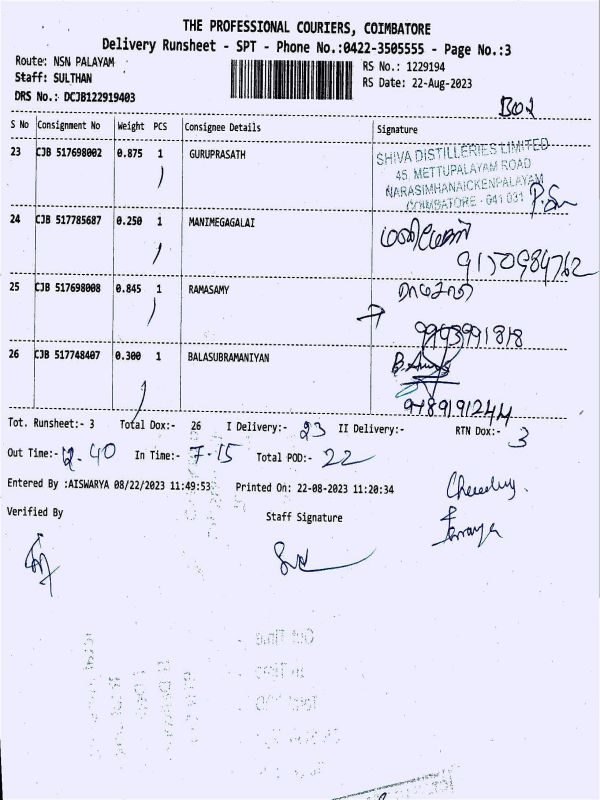 THE PROFESSIONAL COURIERS, COIMBATORE
Delivery Runsheet - SPT - Phone No.:0422-3505555 - Page No.:3
Route: NSN PALAYAM
RS No.: 1229194
Staff: SULTHAN
RS Date: 22-Aug-2023
DRS No.: DCJB122919403
S No Consignment No Weight PCS Consignee Details Signature
23 CJB 517698002 0.875 1 GURUPRASATH
SHIVA DISTILLERIES LIMITED
45, METTUPALAYAM ROAD
NARASIMHANAICKENPALAYAM
COIMBATORE - 641 031
24 CJB 517785687 0.250 1 MANIMEGAGALAI
9150984762
25 CJB 517698008 0.845 1 RAMASAMY
9993991818
26 CJB 517748407 0.300 1 BALASUBRAMANIYAN
Tot. Runsheet:- 3 Total Dox:- 26 I Delivery:- 23 II Delivery:- RTN Dox:- 3
Out Time:- 12.40 In Time:- 7.15 Total POD:- 22
Entered By :AISWARYA 08/22/2023 11:49:53 Printed On: 22-08-2023 11:20:34
Verified By Staff Signature